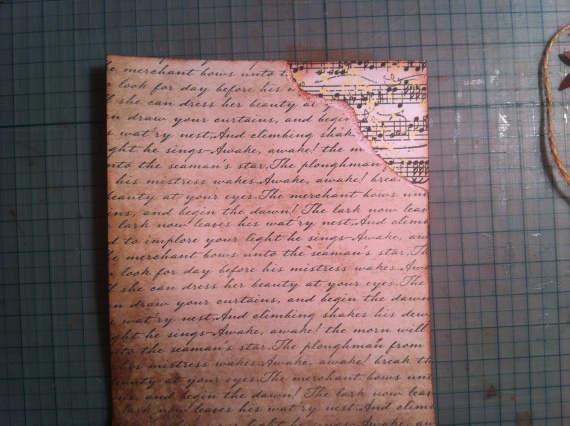 merchant bows unto t
look for day before his
she can dress her beauty at y
n draw your curtains, and begin
s wat'ry nest.And climbing shak
ght he sings~Awake, awake! the m
nto the seaman's star.The ploughman
his mistress wakes.Awake, awake! brea
beauty at your eyes.The merchant bows unt
ins, and begin the dawn! The lark now leav
lark now leaves his wat'ry nest.And climb
d to implore your light he sings~Awake, aw
merchant bows unto the seaman's star.Th
look for day before his mistress wakes.Aw
t she can dress her beauty at your eyes.The
n draw your curtains, and begin the dawn
s wat'ry nest.And climbing shakes his dew
ght he sings~Awake, awake! the morn will
to the seaman's star.The ploughman from
his mistress wakes.Awake, awake! break th
beauty at your eyes.The merchant bows unt
ins, and begin the dawn! The lark now leav
lark now leaves his wat'ry nest.And climb